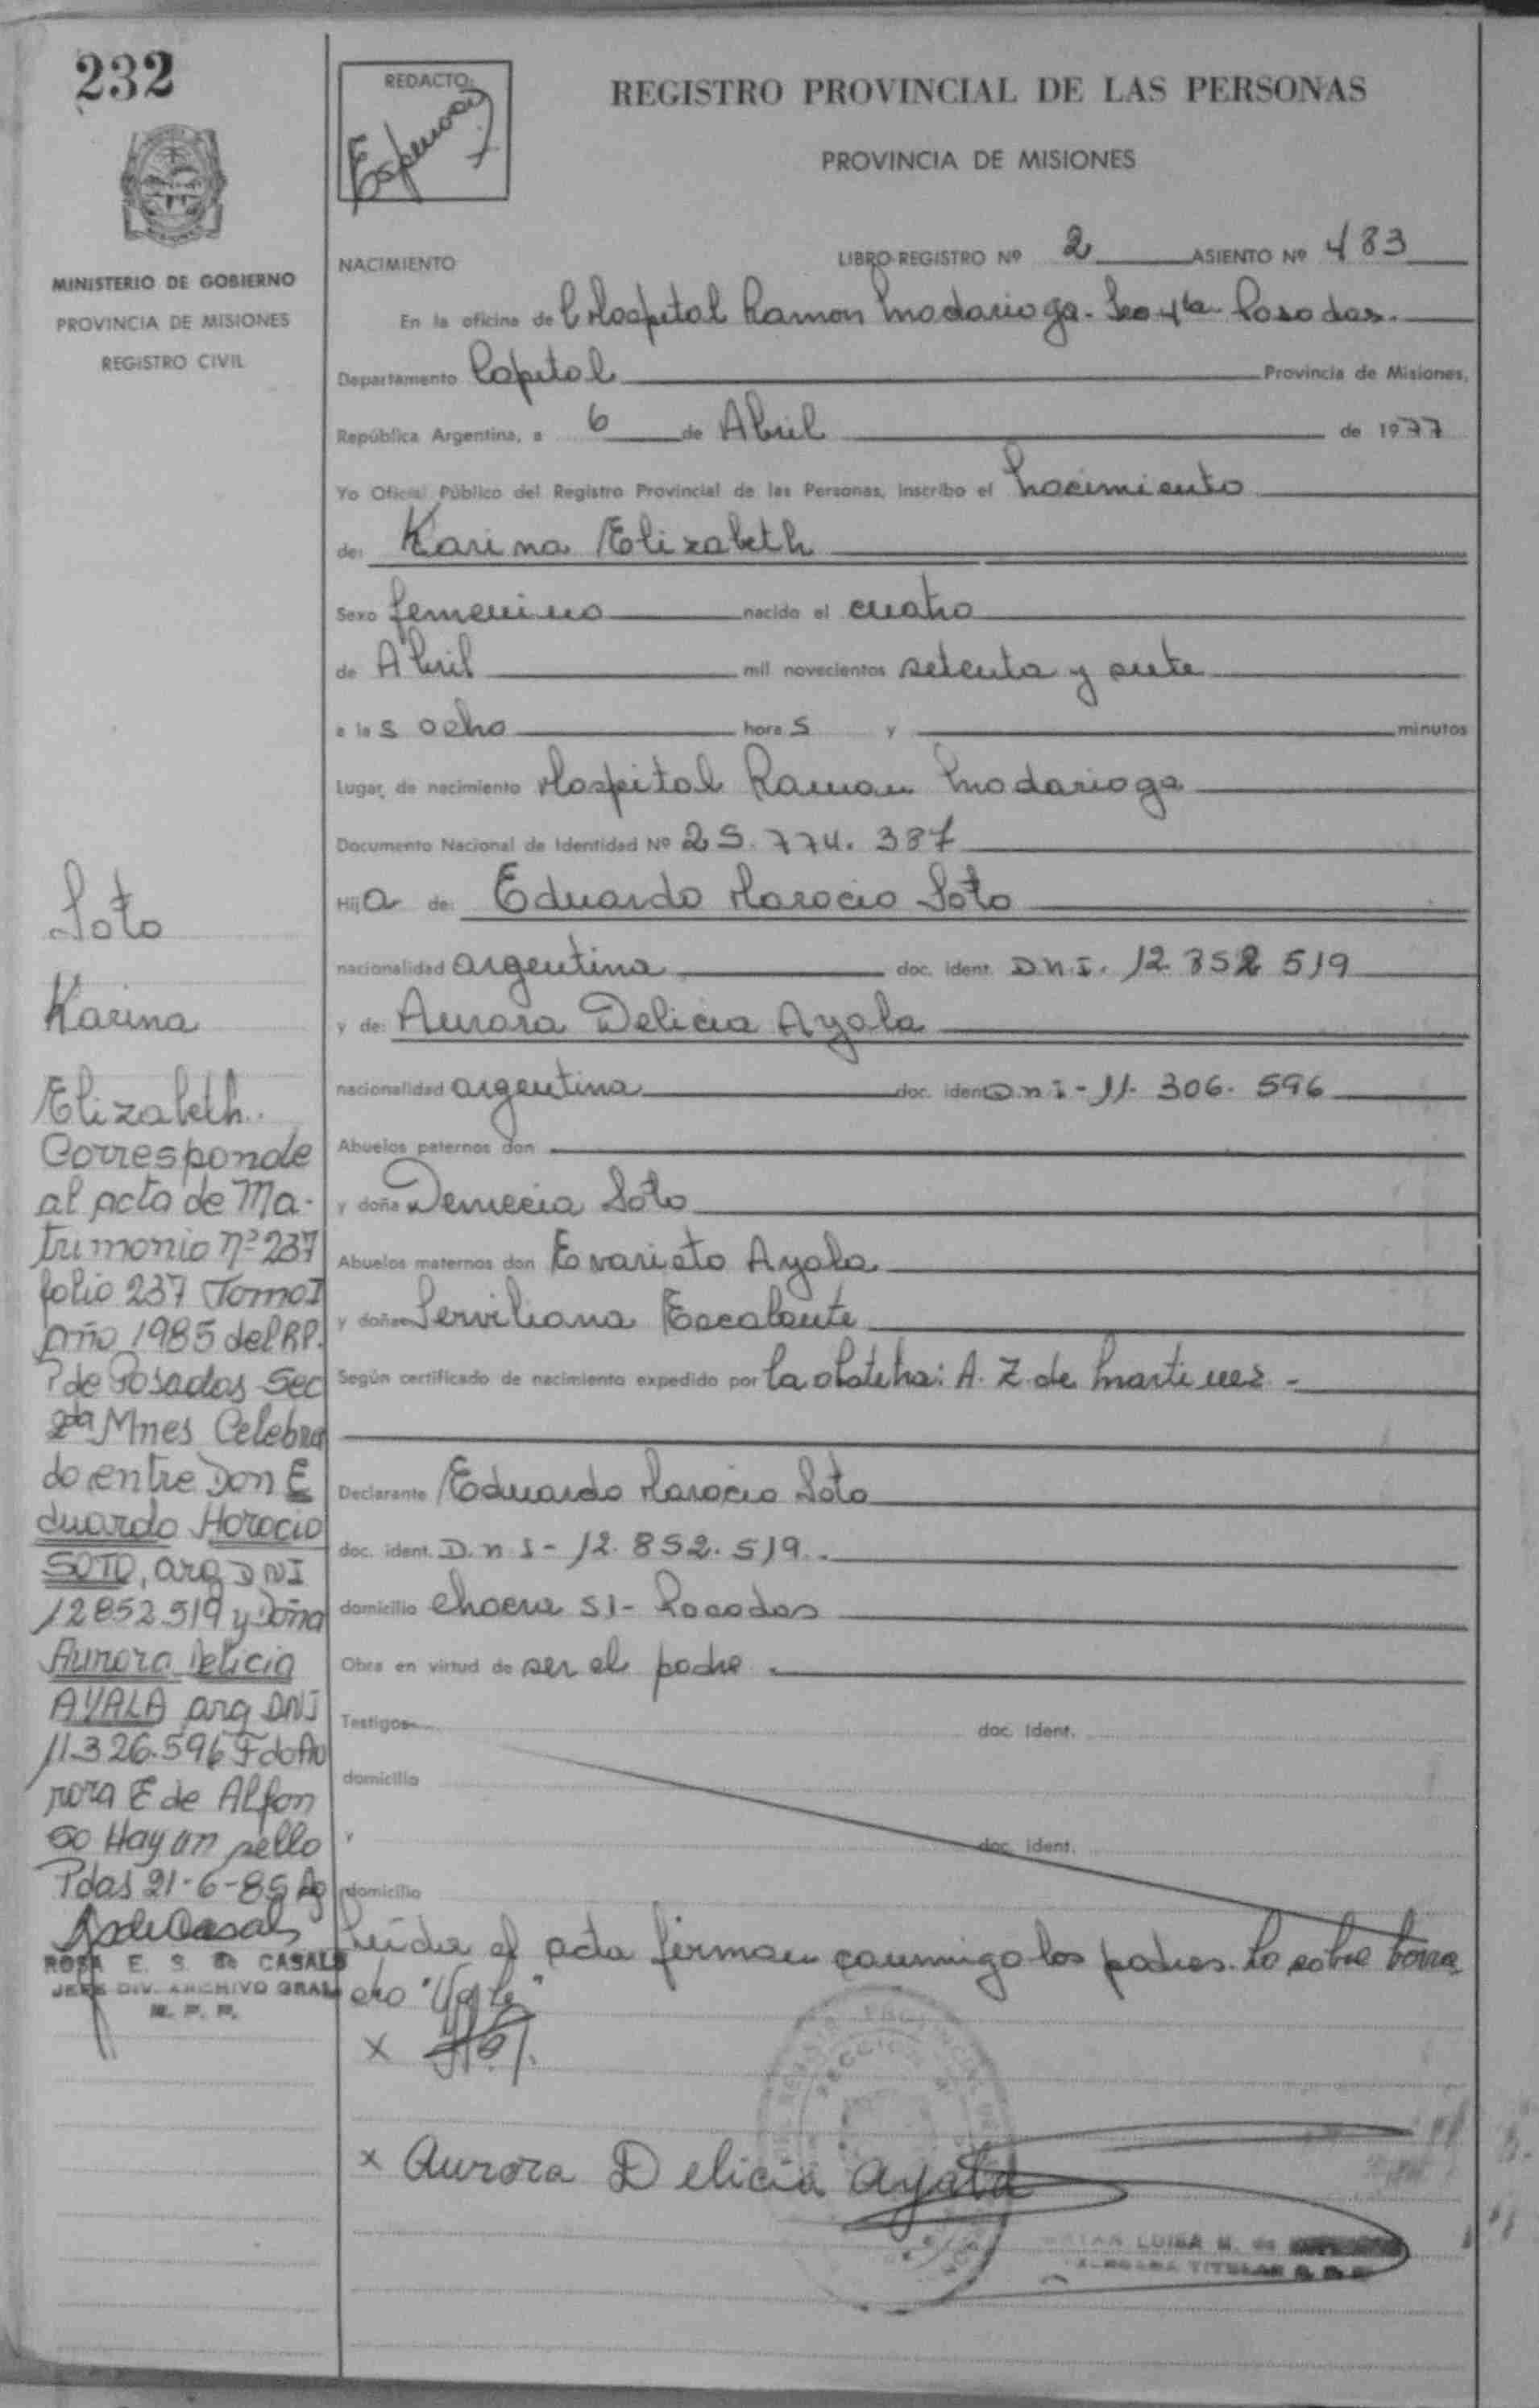 232
MINISTERIO DE GOBIERNO
PROVINCIA DE MISIONES
REGISTRO CIVIL
REDACTO:
REGISTRO PROVINCIAL DE LAS PERSONAS
PROVINCIA DE MISIONES
NACIMIENTO LIBRO-REGISTRO Nº 2 ASIENTO Nº 483
En la oficina de Hospital Ramon Madariaga. Posadas.
Departamento Capital Provincia de Misiones,
República Argentina, a 6 de Abril de 1977
Yo Oficial Público del Registro Provincial de las Personas, inscribo el nacimiento
de: Karina Elizabeth
Sexo femenino nacido el cuatro
de Abril mil novecientos setenta y siete
a las ocho horas y minutos
Lugar de nacimiento Hospital Ramon Madariaga
Documento Nacional de Identidad Nº 25.774.387
Hija de: Eduardo Horacio Soto
nacionalidad argentina doc. ident. D.N.I. 12.852 519
y de: Aurora Delicia Ayala
nacionalidad argentina doc. ident D.n i - 11. 306. 596
Abuelos paternos don
y doña Demecia Soto
Abuelos maternos don Evaristo Ayala
y doña Serviliana Escalante
Según certificado de nacimiento expedido por la obstetra: A. Z. de Martinez -
Declarante Eduardo Horacio Soto
doc. ident. D. n I - 12. 852. 519.
domicilio chacra 51 - Posadas
Obra en virtud de ser el padre.
Testigos doc. Ident.
domicilio
y doc. ident.
domicilio
Leída el acta firman conmigo los padres. Lo sobre borra
do "Vale"
x
x Aurora Delicia Ayala
LUISA M. de
TITULAR
Soto
Karina
Elizabeth.
Corresponde
al acta de Ma-
trimonio nº 237
folio 237 Tomo I
año 1985 del R.P.
P de Posadas Sec
2da Mnes Celebra
do entre Don E
duardo Horacio
SOTO, arg DNI
12852.519 y Doña
Aurora Delicia
AYALA arg DNI
11.326.596 Fdo Au
rora E de Alfon
so Hay un sello
Pdas 21-6-85
ROSA E. S. de CASALS
JEFE DIV. ARCHIVO GRAL
R. P. P.